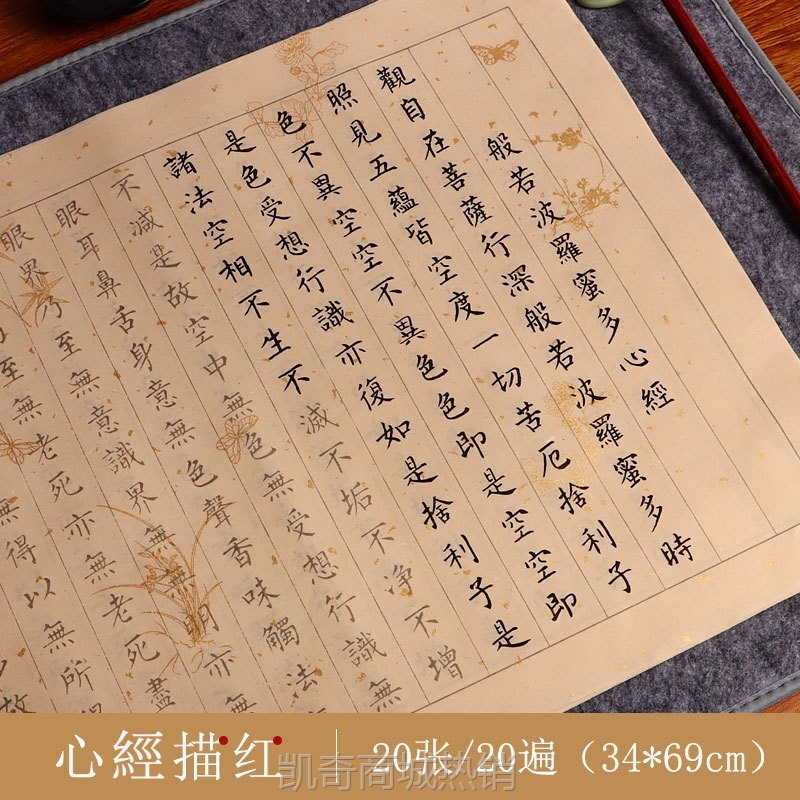 般若波羅蜜多心經
觀自在菩薩行深般若波羅蜜多時
照見五蘊皆空度一切苦厄捨利子
色不異空空不異色色即是空空即
是色受想行識亦復如是捨利子是
諸法空相不生不滅不垢不净不增
不減是故空中無色無受想行識無
眼耳鼻舌身意無色聲香味觸法
眼界乃至無意識界無無明亦無
至無老死亦無老死盡
無得以無所
故
心經描红
20张/20遍（34*69cm）
凯奇商城热销